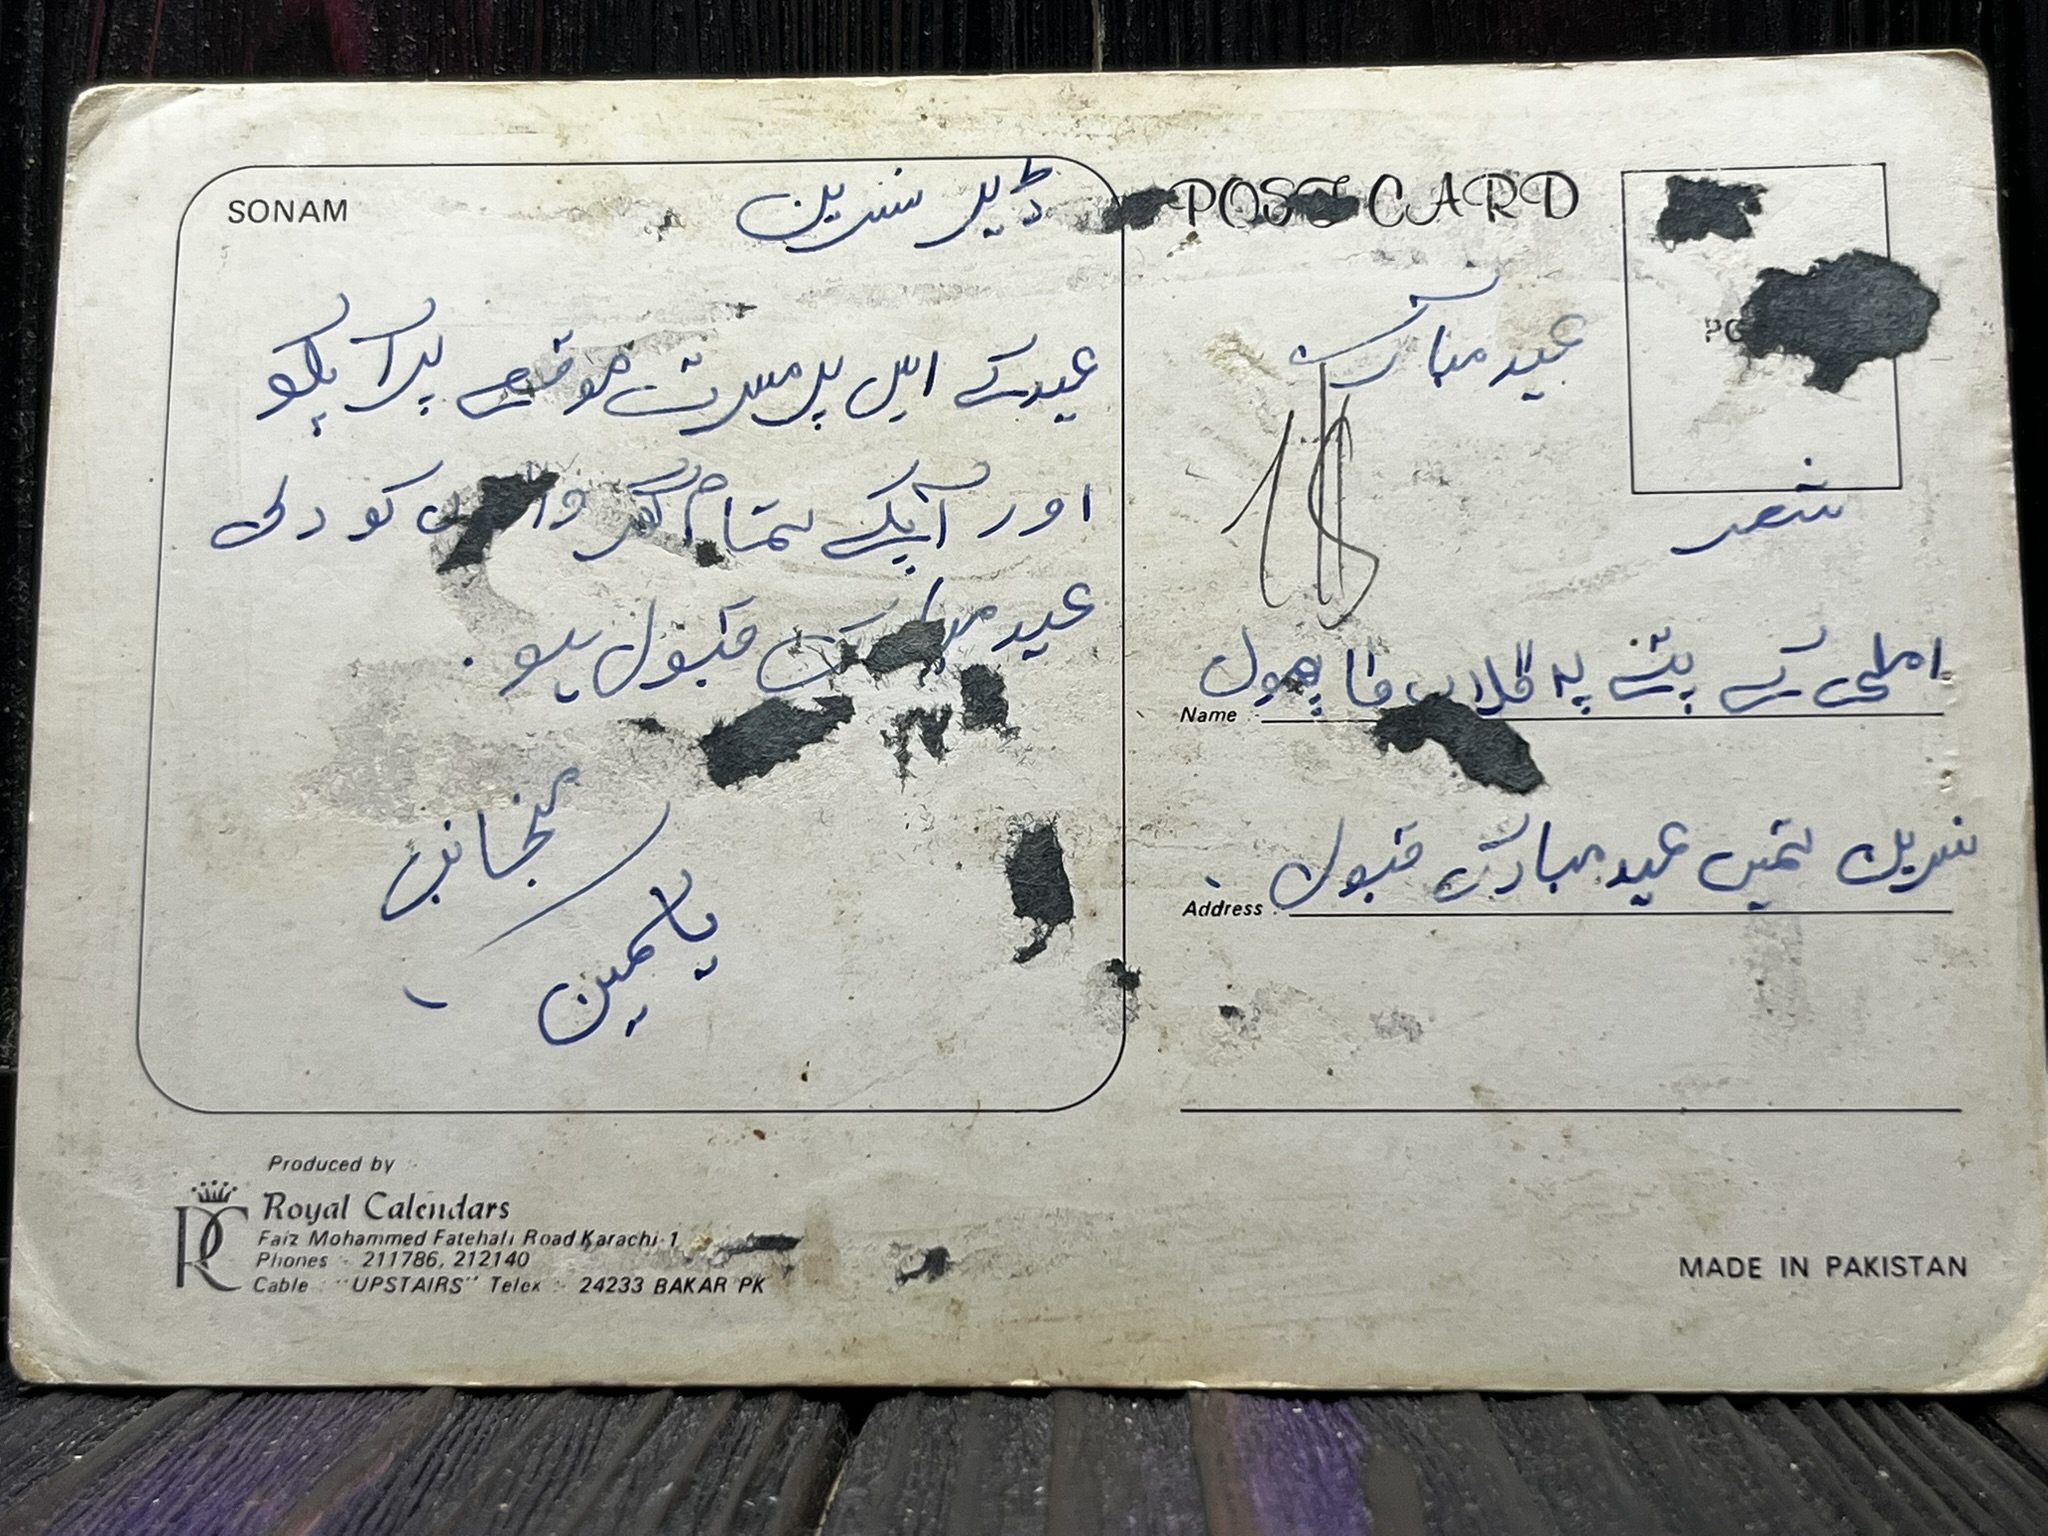 SONAM
ڈیر نسرین
عید کے اس پر مسرت موقعے پر آپکو
اور آپکے تمام گھر والوں کو دلی
عید مبارک قبول ہو۔
منجانب
یاسمین
POST CARD
عید مبارک
شعر
املی کے پتے پہ گلاب کا پھول
Name :-
نسرین تمہیں عید مبارک قبول۔
Address :-
Produced by :-
RC
Royal Calendars
Faiz Mohammed Fatehali Road Karachi-1
Phones :- 211786, 212140
Cable : "UPSTAIRS" Telex :- 24233 BAKAR PK
MADE IN PAKISTAN